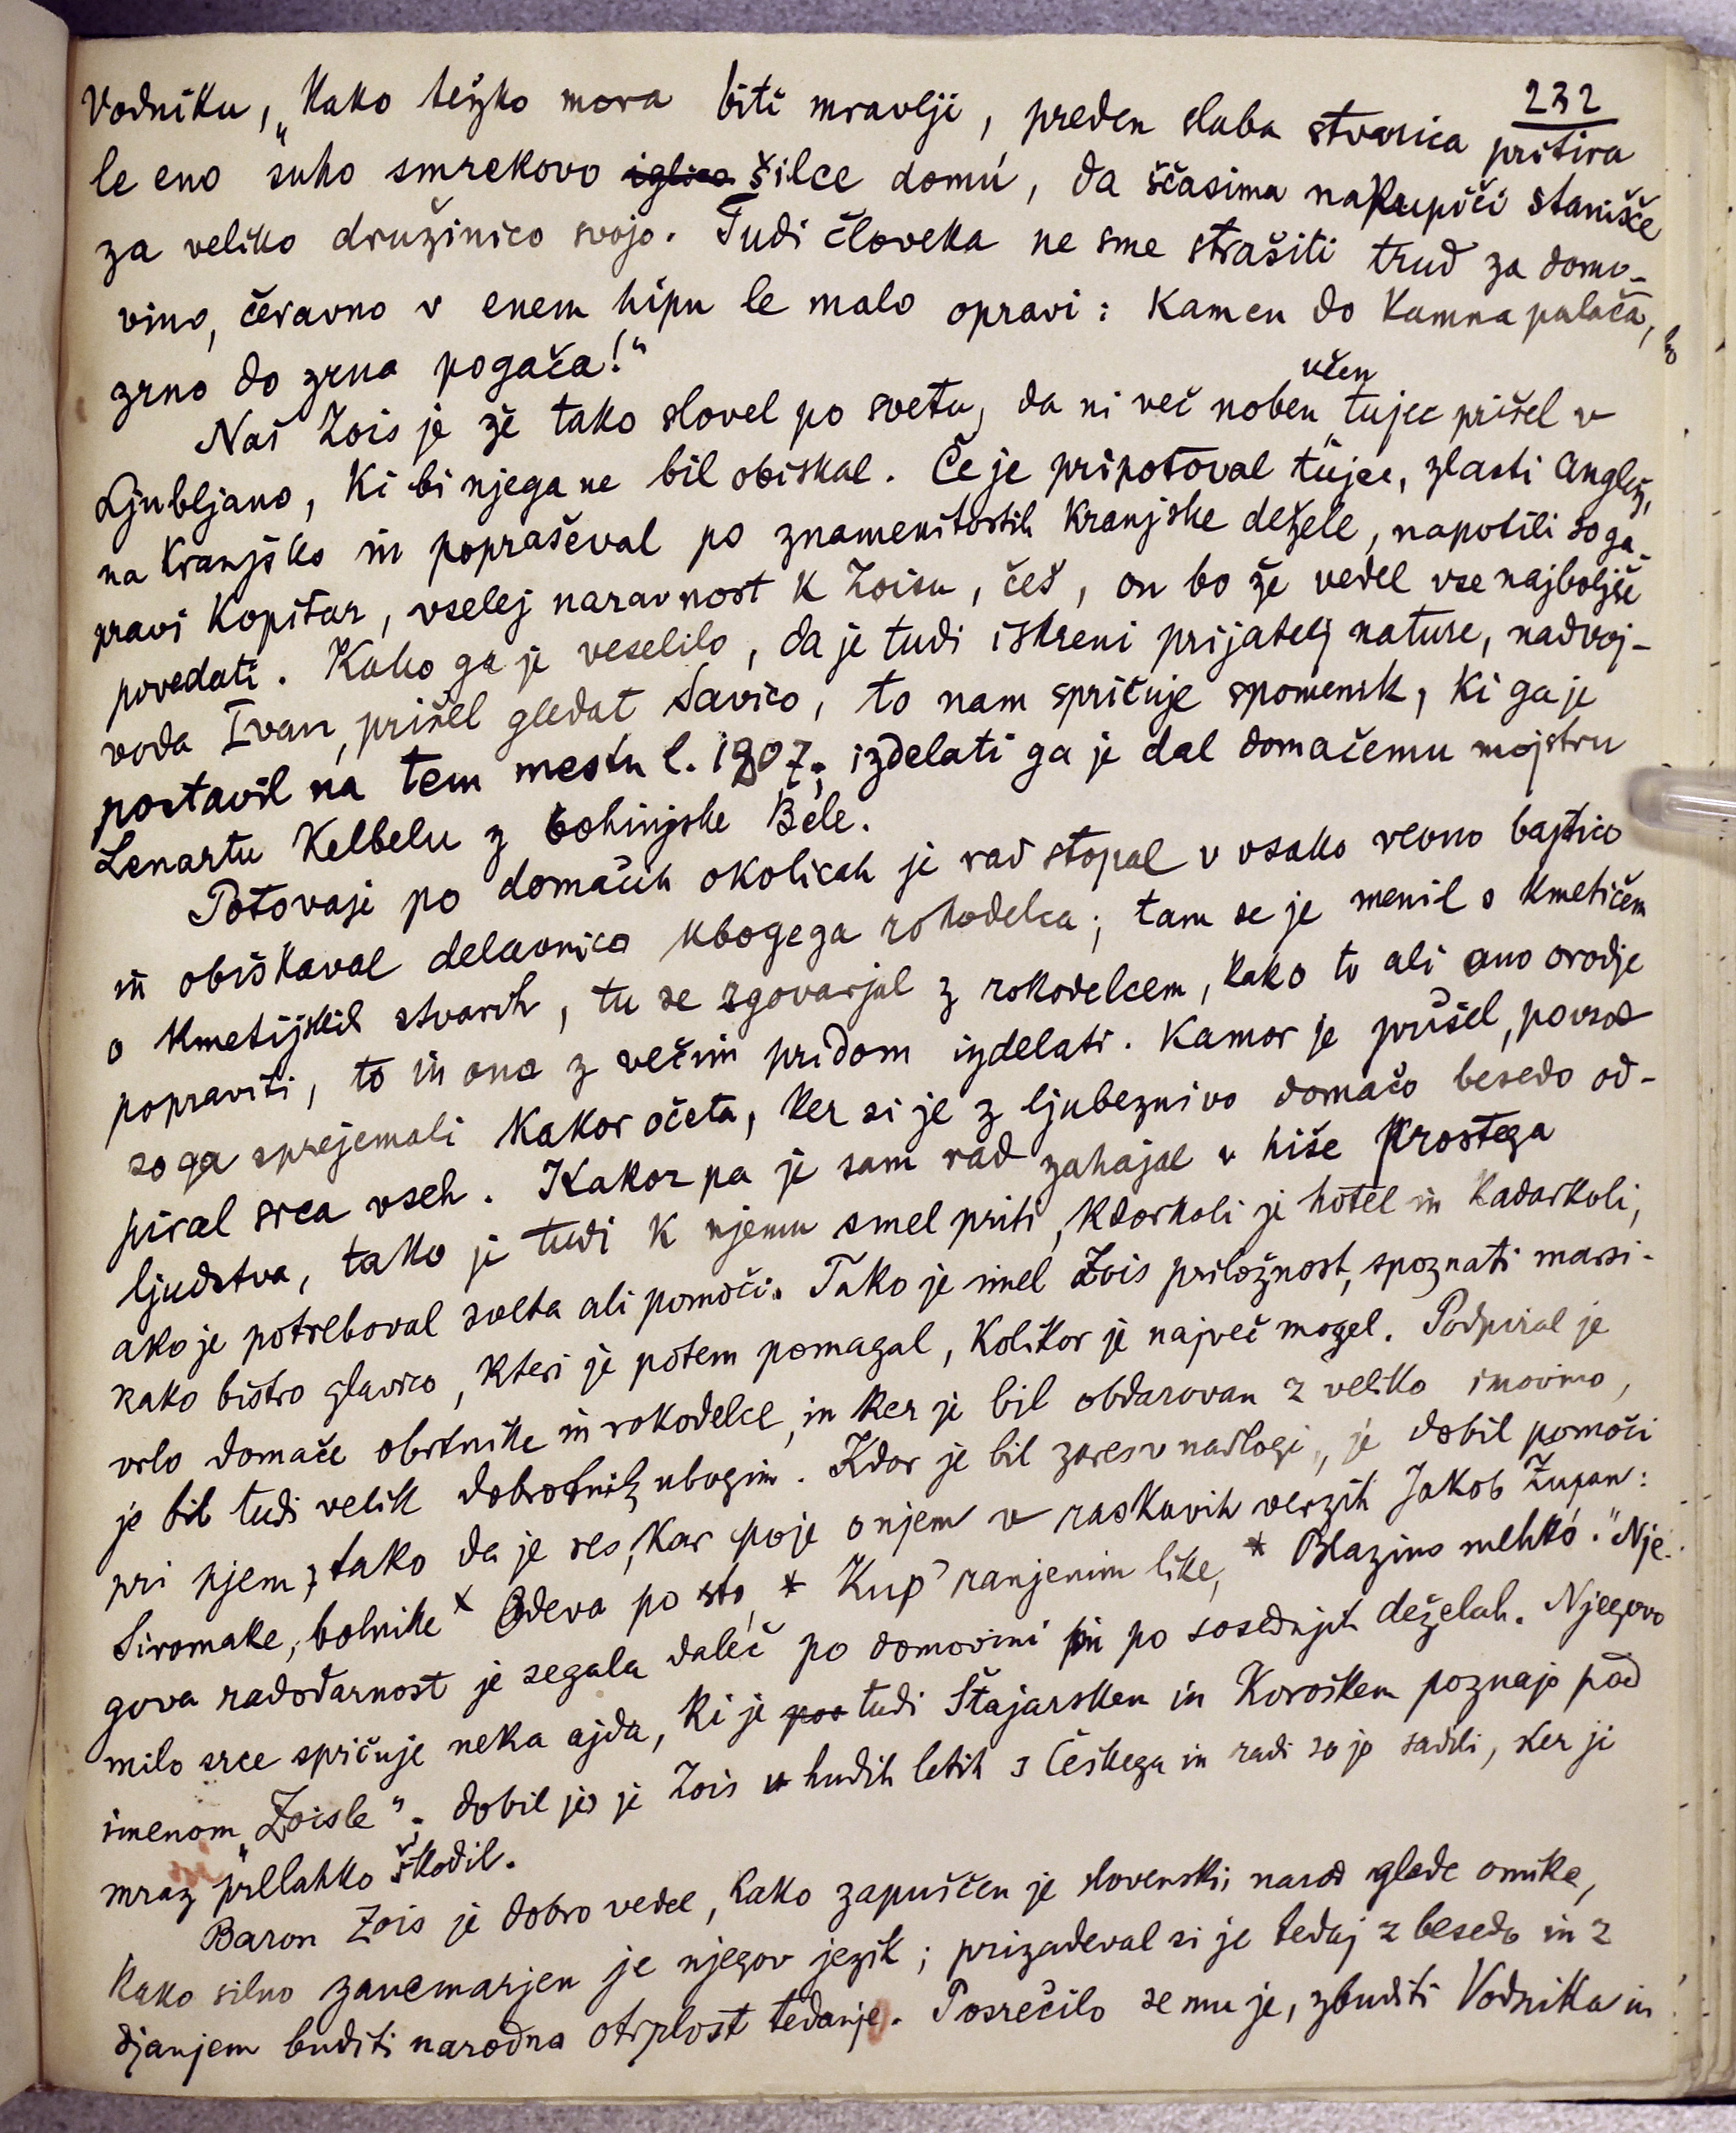 232
Vodniku, „Kako težko mora biti mravlji, preden slaba stvarica pritira
le eno suho smrekovo iglico šilce domú, da ščasima nakupiči stanišče
za veliko družinico svojo. Tudi človeka ne sme strašiti trud za domo-
vino, čeravno v enem hipu le malo opravi: Kamen do kamna palača,
zrno do zrna pogača!“
Naš Zois je že tako slovel po svetu, da ni več noben učen tujec prišel v
Ljubljano, ki bi njega ne bil obiskal. Če je pripotoval tujec, zlasti Anglež,
na Kranjsko in popraševal po znamenitostih Kranjske dežele, napotili so ga-
pravi Kopitar, vselej naravnost k Zoisu, češ, on bo že vedel vse najboljše
povedati. Kako ga je veselilo, da je tudi iskreni prijatelj nature, nadvoj-
voda Ivan, prišel gledat Savico, to nam spričuje spomenik, ki ga je
postavil na tem mestu l. 1807.; izdelati ga je dal domačemu mojstru
Lenartu Kelbelu z bohinjske Béle.
Potovaje po domačih okolicah je rad stopal v vsako revno bajtico
in obiskaval delavnico ubogega rokodelca; tam se je menil s kmetičem
o kmetijskih stvarih, tu se zgovarjal z rokodelcem, kako to ali ono orodje
popraviti, to in ono z večim pridom izdelati. Kamor je prišel, povsod
so ga sprejemali kakor očeta, ker si je z ljubeznivo domačo besedo od-
piral srca vseh. Kakor pa je sam rad zahajal v hiše prostega
ljudstva, tako je tudi k njemu smel priti, kdorkoli je hotel in kadarkoli,
ako je potreboval sveta ali pomoči. Tako je imel Zois priložnost, spoznati marsi-
kako bistro glavico, kteri je potem pomagal, kolikor je največ mogel. Podpiral je
vrlo domače obrtnike in rokodelce, in ker je bil obdarovan z veliko imovino,
je bil tudi velik dobrotnik ubogim. Kdor je bil zares v nadlogi, je dobil pomoči
pri njem, tako da je res, kar poje o njem v raskavih verzih Jakob Zupan:
Siromake, bolnike * Odeva po sto, * Kup' ranjenim like, * Blazino mehkó.“ Nje-
gova radodarnost je segala daleč po domovini in po sosednjih deželah. Njegovo
milo srce spričuje neka ajda, ki je poo tudi Štajarsken in Korošken poznajo pod
imenom „Zoisle“; dobil jo je Zois v hudih letih s Češkega in radi so jo sadili, ker ji
mraz ni prelahko škodil.
Baron Zois je dobro vedel, kako zapuščen je slovenski narod glede omike,
kako silno zanemarjen je njegov jezik; prizadeval si je tedaj z besedo in z
djanjem buditi narodno otrplost tedanjo. Posrečilo se mu je, zbuditi Vodnika in